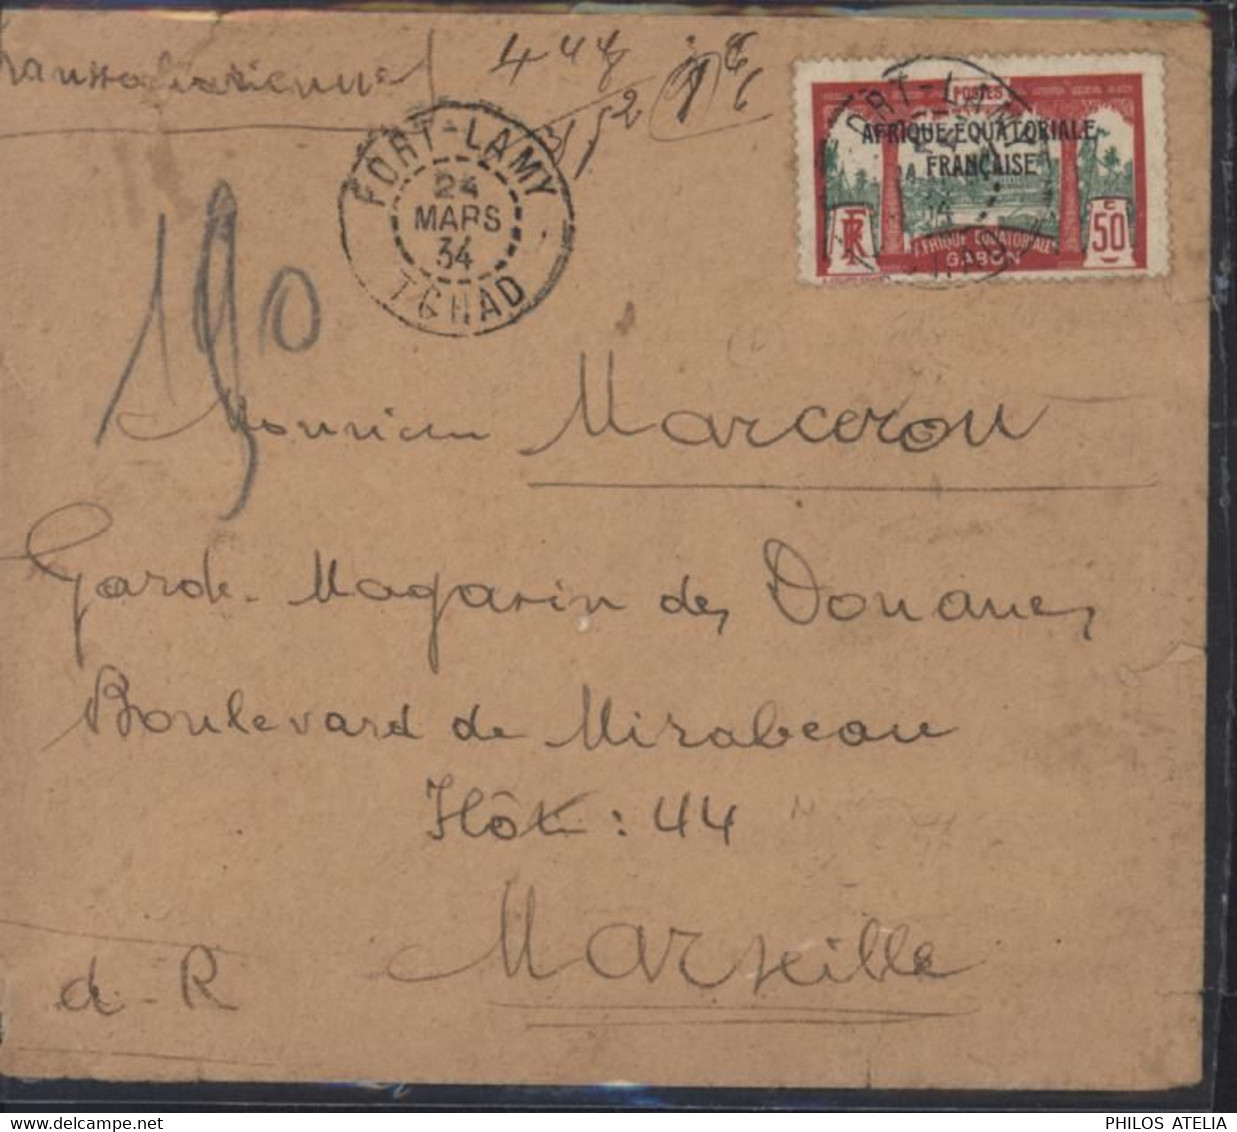 transsaharienne
FORT-LAMY
24
MARS
34
TCHAD
POSTES
AFRIQUE ÉQUATORIALE
FRANÇAISE
RF
AFRIQUE ÉQUATORIALE
GABON
50
190
Monsieur Marceron
Garde-Magasin des Douanes
Boulevard de Mirabeau
Hôtel : 44
Marseille
a-R
PHILOS ATELIA